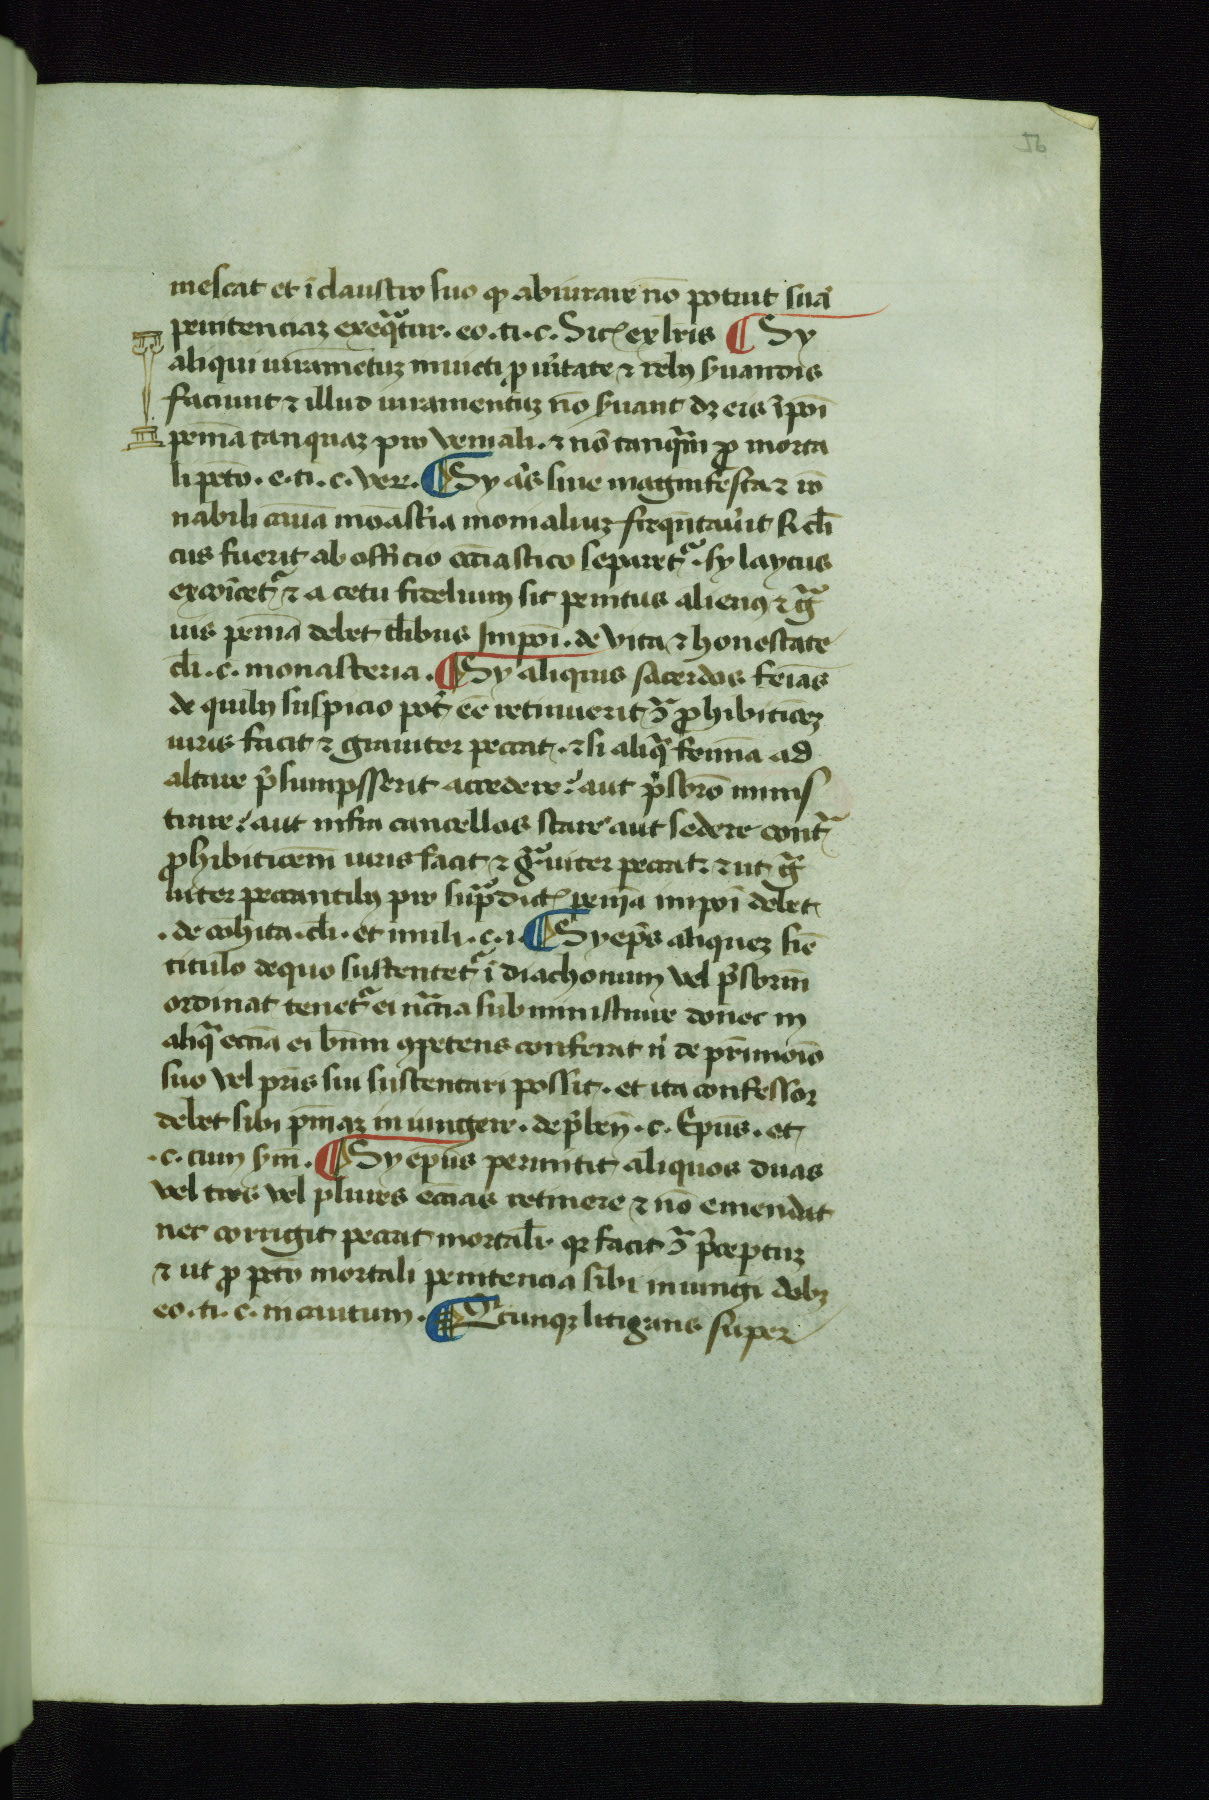 mescat et ī claustro suo qͥ abiurare nō potuit suā
penitenciaꝫ exeqᷓtur . eo . ti . c . Sicͨ ex lr̄is ¶ Sy
aliqui iuramētuꝫ inuicti ꝓ vͥitate ⁊ rebꝰ ẜuandis
faciunt ⁊ illud iuramentuꝫ nō ẜuant dꝫ eis īpoī
penīa tanquaꝫ pro veniali . ⁊ nō tanqᷓm ꝓ morta
li pctō . e . ti . c . vere . ¶ Sy qͥs sine magnifesta ⁊ rō
nabili causa monast̄ia monialiuꝫ freqn̄tauͥit si cl̄i
cus fuerit ab officio ecc̄iastico separetᷣ . sy laycus
excōicetᷣ ⁊ a cetu fidelium sit penitus alienꝰ ⁊ gᷓ
uis penīa debet cl̄ibus Impoī . de vita ⁊ honestate
cl̄i . c . monasteria . ¶ Sy aliquis sacerdos feīas
de quibꝰ suspicio potͥ eē retinuerit ꝯᷓ ꝓhibitiōeꝫ
iuris facit ⁊ grauiter peccat . ⁊ si aliqᷓ femīa ad
altare p̄sumpsserit accedere : aut p̄sbrō minis
trare : aut infra cancellos stare aut sedere contᷓ
ꝓhibitiōem iuris facit ⁊ gᷓuiter peccat . ⁊ ut gᷓ
uiter peccantibꝰ pro supᷓdictͨ penīa impoī debet
. de cohita . cl̄i . et muli . c . i . ¶ Sy ep̄s aliqueꝫ siē
titulo de quo sustentetᷣ ī diachonum vel p̄sbrm̄
ordinat tenetᷣ ei nc̄cīa subministrare donec in
aliqᷓ ecc̄ia ei bn̄m ꝯpetens conferat nͥ de pr̄imoīo
suo vel pr̄is sui sustentari possit . et ita confessor
debet sibi pn̄iaꝫ iniungere . de p̄ben̄ . c . Ep̄us . et
. c . cum ẜm . ¶ Sy ep̄us permittit aliquos duas
vel tres vel plures ecc̄ias retinere ⁊ nō emendat
nec corrigit peccat mortal̄r qꝛ facit ꝯᷓ p̄ceptuꝫ
⁊ ut ꝓ pctō mortali penitencia sibi iniungi debꝫ
eo . ti . c . in cautum . ¶ Qͥcunqꝫ litigans super